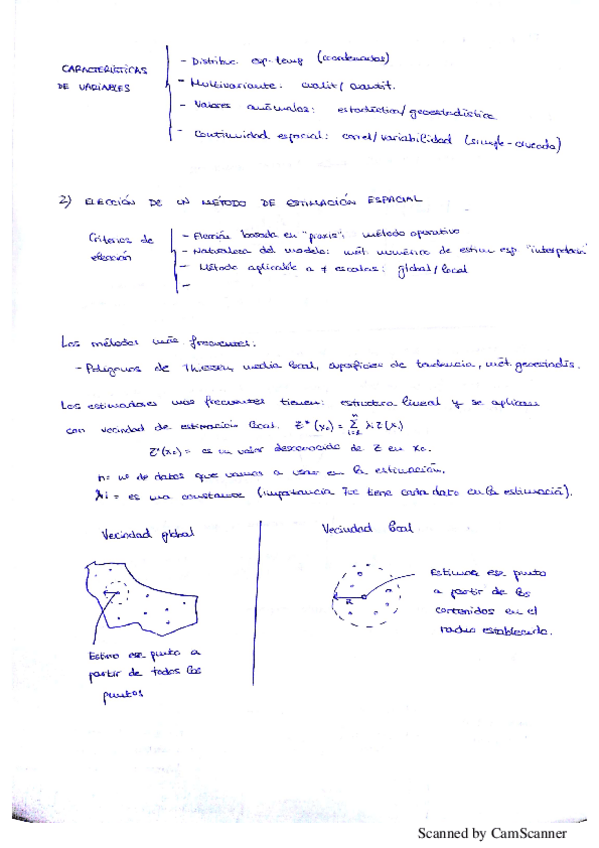 CARACTERÍSTICAS
DE VARIABLES
- Distribuc. esp-temp (coordenadas)
- Multivariante: cualit/cuantit.
- Valores anómalos: estadística/geoestadística
- Continuidad espacial: correl/variabilidad (simple-cruzada)
2) ELECCIÓN DE UN MÉTODO DE ESTIMACIÓN ESPACIAL
Criterios de
elección
- Elección basada en "praxis": método operativo
- Naturaleza del modelo: mét. numérico de estim esp "interpolación"
- Método aplicable a ≠ escalas: global/local
-
Los métodos más frecuentes:
- Polígonos de Thiessen, media local, superficies de tendencia, mét. geoestadís.
Los estimadores más frecuentes tienen: estructura lineal y se aplican
con vecindad de estimación local. Z*(x₀) = Σ λ Z(xᵢ)
Z*(x₀) = es un valor desconocido de Z en x₀.
n: nº de datos que vamos a usar en la estimación.
λi = es una constante (importancia que tiene cada dato en la estimació).
Vecindad global
Vecindad local
R
Estimo ese punto a
partir de todos los
puntos
Estimar ese punto
a partir de los
contenidos en el
radio establecido.
Scanned by CamScanner